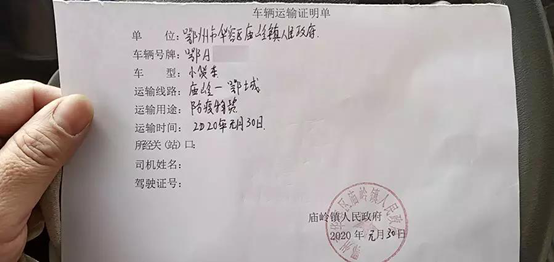 车辆运输证明单
单 位：鄂州市华容区庙岭镇人民政府
车辆号牌：鄂
车 型：小货车
运输线路：庙岭一鄂城
运输用途：防疫物资
运输时间：2020年元月30日
所经关（站）口：
司机姓名：
驾驶证号：
区庙岭镇人民政
庙岭镇人民政府
2020 年元月30日